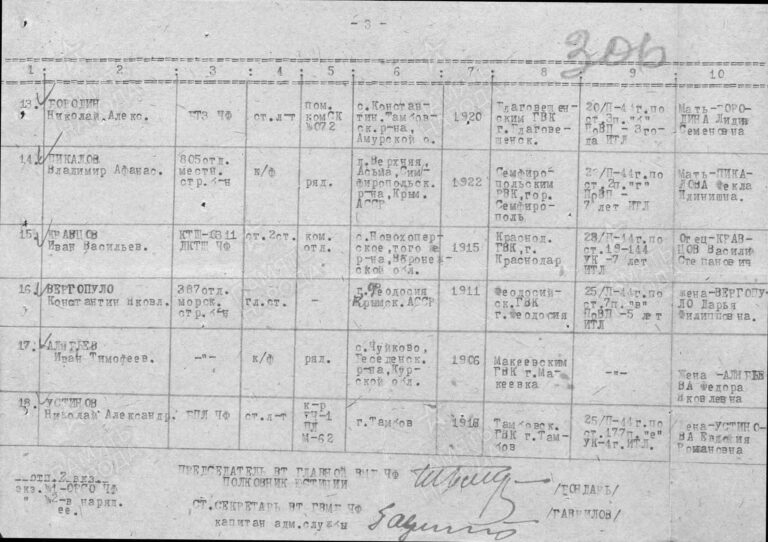 - 3 -
306
1. : 2 : 3 : 4 : 5 : 6 : 7 : 8 : 9 : 10
13. БОРОДИН Николай Алекс. БТЗ ЧФ ст.л-т пом. ком СК №072 с.Констан- тин.Тамбов- ск.р-на, Амурской о. 1920 Благовещен- ским ГВК г.Благове- щенск. 20/П-44г.по ст.3п."г" ПоВП - 3го- да ИТЛ Мать-БОРО- ДИНА Лидия Семеновна
14. ПИКАЛОВ Владимир Афанас. 805отд. местн. стр.б-н к/ф ряд. д.Верхняя, Асьма,Сим- феропольск. р-на,Крым. АССР 1922 Семфиро- польским РВК,гор. Семфиро- поль ст.2п."г" ПоВП - 7 лет ИТЛ Мать-ПИКА- ЛОВА Фекла
15. КРАВЦОВ Иван Васильев. ЛКТЩ ЧФ ст.2ст. ком. отд. с.Новохопер- ское,того же р-на,Воронеж- ской обл. 1915 Краснод. ГВК,г. Краснодар 28/П-44г.по ст.19-144 УК -7 лет ИТЛ Отец-КРАВ- ЦОВ Василий Степанович
16. ВЕРГОПУЛО Константин Яковл. 387отд. морск. стр.б-н гл.ст. - г.Феодосия Крымск.АССР 1911 Феодосий- ск.ГВК г.Феодосия 25/П-44г.по ст.7п."в" ПоВП -5 лет ИТЛ Жена-ВЕРГОПУ- ЛО Дарья Филипповна.
17. Иван Тимофеев. -"- к/ф ряд. с.Чуйково, р-на,Кур- ской обл. 1906 Макеевским ГВК г.Ма- кеевка -"- Жена Федора Яковлевна
18. УСТИНОВ Николай Александр. БПЛ ЧФ ст.л-т к-р БЧ-1 ПЛ М-62 г.Тамбов 1918 Тамбовск. ГВК г.Там- бов 25/П-44г.по ст.177п."е" УК-4г.ИТЛ. Жена-УСТИНО- ВА Евдокия Романовна
отп.2 экз. экз.№1-ОРСО ЧФ " №2-в наряд.
ПРЕДСЕДАТЕЛЬ ВТ ГЛАВНОЙ ВМБ ЧФ
ПОЛКОВНИК ЮСТИЦИИ /ГОНДАРЬ/
СТ.СЕКРЕТАРЬ ВТ ГВМБ ЧФ
капитан адм.службы /ГАВРИЛОВ/